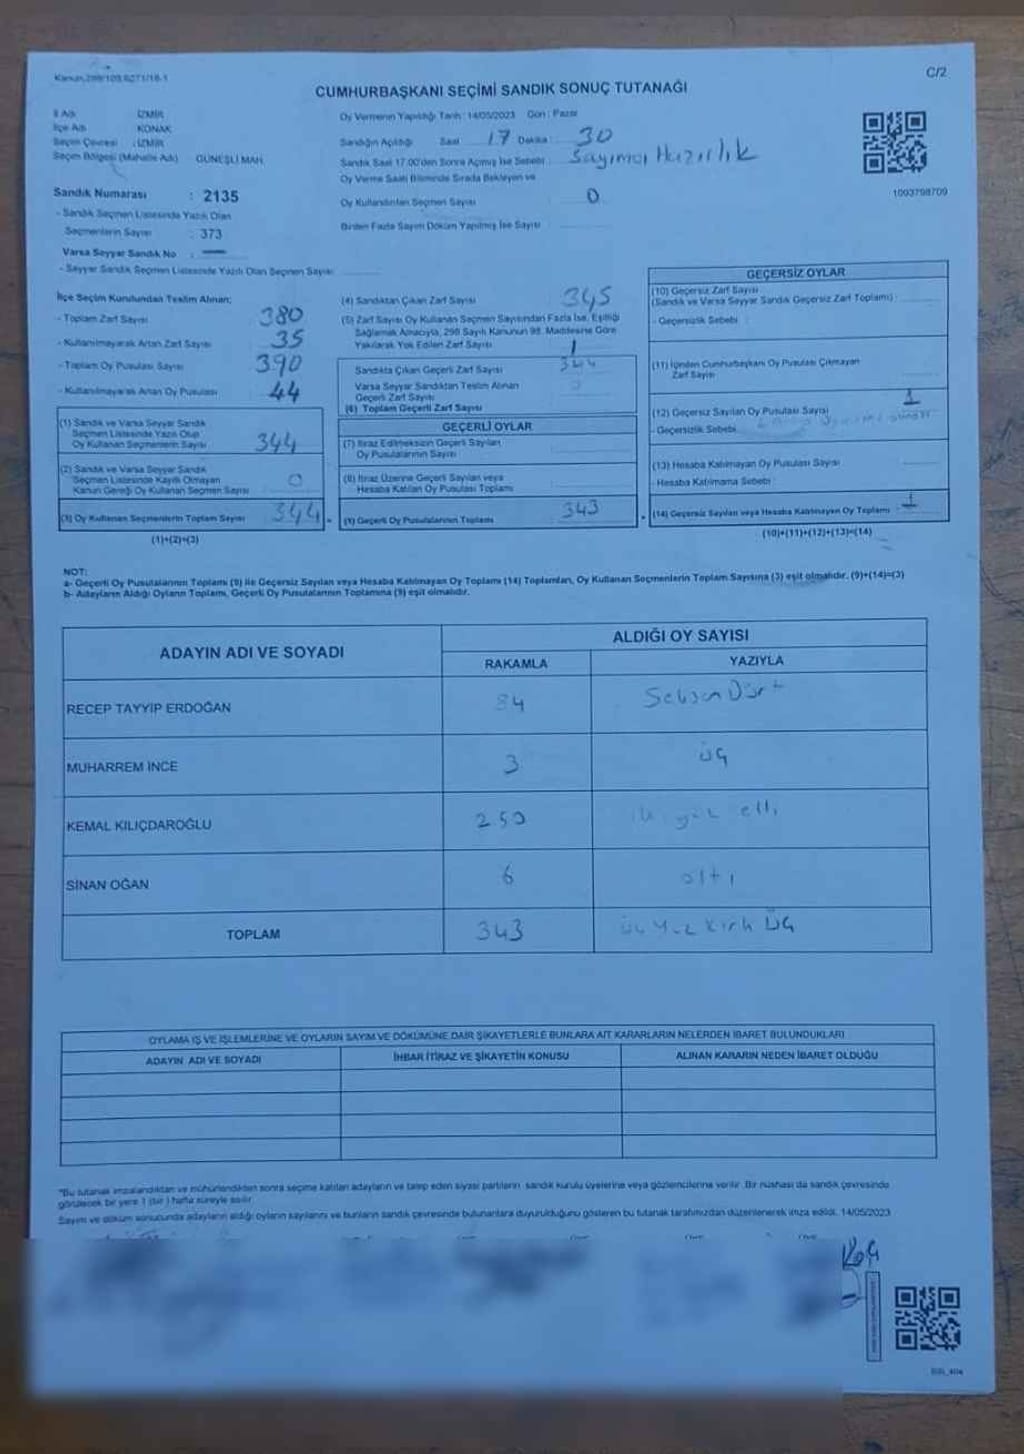 Kanun,298/109,6271/18-1
C/2
CUMHURBAŞKANI SEÇİMİ SANDIK SONUÇ TUTANAĞI
İl Adı : İZMİR
İlçe Adı : KONAK
Seçim Çevresi : İZMİR
Seçim Bölgesi (Mahalle Adı) : GÜNEŞLİ MAH.
Oy Vermenin Yapıldığı Tarih : 14/05/2023 Gün : Pazar
Sandığın Açıldığı Saat : 17 Dakika : 30
Sandık Saat 17.00'den Sonra Açmış İse Sebebi : Sayımai Hazırlık
Oy Verme Saati Bitiminde Sırada Bekleyen ve
Oy Kullandırılan Seçmen Sayısı : 0
Birden Fazla Sayım Döküm Yapılmış İse Sayısı :
1003798709
Sandık Numarası : 2135
- Sandık Seçmen Listesinde Yazılı Olan
Seçmenlerin Sayısı : 373
Varsa Seyyar Sandık No : —
- Seyyar Sandık Seçmen Listesinde Yazılı Olan Seçmen Sayısı :
İlçe Seçim Kurulundan Teslim Alınan;
- Toplam Zarf Sayısı 380
- Kullanılmayarak Artan Zarf Sayısı 35
- Toplam Oy Pusulası Sayısı 390
- Kullanılmayarak Artan Oy Pusulası 44
(1) Sandık ve Varsa Seyyar Sandık
Seçmen Listesinde Yazılı Olup
Oy Kullanan Seçmenlerin Sayısı 344
(2) Sandık ve Varsa Seyyar Sandık
Seçmen Listesinde Kayıtlı Olmayan
Kanun Gereği Oy Kullanan Seçmen Sayısı 0
(3) Oy Kullanan Seçmenlerin Toplam Sayısı 344
(1)+(2)=(3)
(4) Sandıktan Çıkan Zarf Sayısı 345
(5) Zarf Sayısı Oy Kullanan Seçmen Sayısından Fazla İse, Eşitliği
Sağlamak Amacıyla, 298 Sayılı Kanunun 98. Maddesine Göre
Yakılarak Yok Edilen Zarf Sayısı 1
Sandıkta Çıkan Geçerli Zarf Sayısı 344
Varsa Seyyar Sandıktan Teslim Alınan
Geçerli Zarf Sayısı
(6) Toplam Geçerli Zarf Sayısı
GEÇERLİ OYLAR
(7) İtiraz Edilmeksizin Geçerli Sayılan
Oy Pusulalarının Sayısı
(8) İtiraz Üzerine Geçerli Sayılan veya
Hesaba Katılan Oy Pusulası Toplamı
(9) Geçerli Oy Pusulalarının Toplamı 343
GEÇERSİZ OYLAR
(10) Geçersiz Zarf Sayısı
(Sandık ve Varsa Seyyar Sandık Geçersiz Zarf Toplamı) :
- Geçersizlik Sebebi :
(11) İçinden Cumhurbaşkanı Oy Pusulası Çıkmayan
Zarf Sayısı
(12) Geçersiz Sayılan Oy Pusulası Sayısı 1
- Geçersizlik Sebebi
(13) Hesaba Katılmayan Oy Pusulası Sayısı
- Hesaba Katılmama Sebebi :
(14) Geçersiz Sayılan veya Hesaba Katılmayan Oy Toplamı 1
(10)+(11)+(12)+(13)=(14)
NOT:
a- Geçerli Oy Pusulalarının Toplamı (9) ile Geçersiz Sayılan veya Hesaba Katılmayan Oy Toplamı (14) Toplamları, Oy Kullanan Seçmenlerin Toplam Sayısına (3) eşit olmalıdır. (9)+(14)=(3)
b- Adayların Aldığı Oyların Toplamı, Geçerli Oy Pusulalarının Toplamına (9) eşit olmalıdır.
ADAYIN ADI VE SOYADI
ALDIĞI OY SAYISI
RAKAMLA YAZIYLA
RECEP TAYYİP ERDOĞAN 84 Seksen Dört
MUHARREM İNCE 3 üç
KEMAL KILIÇDAROĞLU 250 iki yüz elli
SİNAN OĞAN 6 altı
TOPLAM 343 üç Yüz Kırk Üç
OYLAMA İŞ VE İŞLEMLERİNE VE OYLARIN SAYIM VE DÖKÜMÜNE DAİR ŞİKAYETLERLE BUNLARA AİT KARARLARIN NELERDEN İBARET BULUNDUKLARI
ADAYIN ADI VE SOYADI İHBAR İTİRAZ VE ŞİKAYETİN KONUSU ALINAN KARARIN NEDEN İBARET OLDUĞU
*Bu tutanak imzalandıktan ve mühürlendikten sonra seçime katılan adayların ve talep eden siyasi partilerin, sandık kurulu üyelerine veya gözlemcilerine verilir. Bir nüshası da sandık çevresinde
görülecek bir yere 1 (bir ) hafta süreyle asılır.
Sayım ve döküm sonucunda adayların aldığı oyların sayılarını ve bunların sandık çevresinde bulunanlara duyurulduğunu gösteren bu tutanak tarafımızdan düzenlenerek imza edildi. 14/05/2023